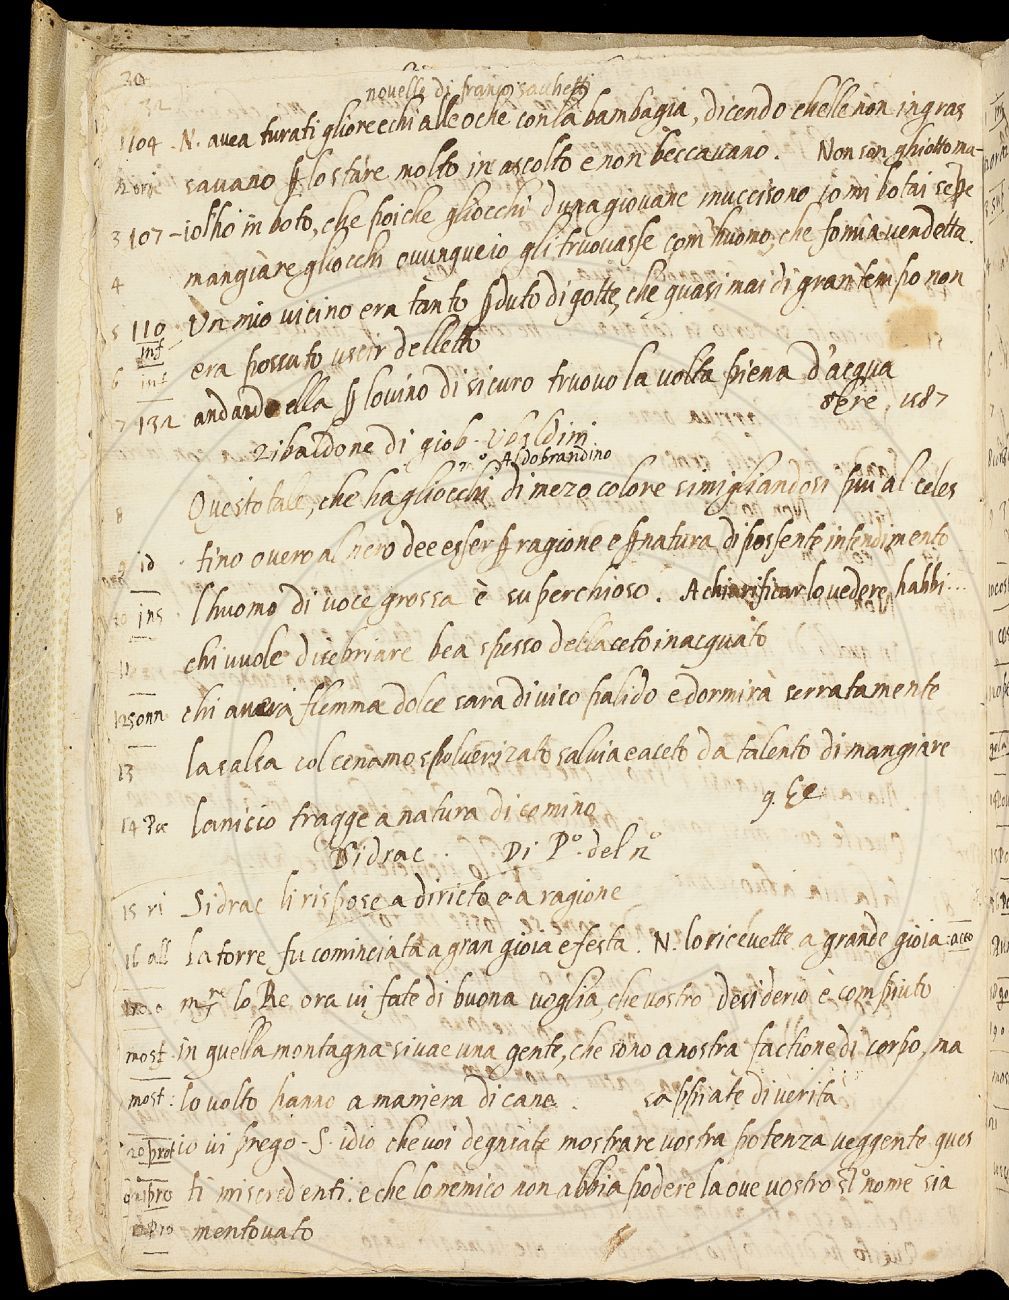 30
32
novelle di franco sacchetti
1 104 - N. avea turati gliorecchi alle oche con la bambagia, dicendo chelle non ingras
2 savano p lo stare molto in ascolto e non beccavano. Non son ghiotto ma-
3 107 - iolho in boto, che poiche gliocchi duna giovane muccisono io mi botai sepe
4 mangiare gliocchi ovunque io gli truovasse com huomo, che fo mia vendetta.
5 110 Un mio vicino era tanto pduto di gotte, che quasi mai di gran tempo non
inf
6 inf era possuto uscir delletto
7 132 andando ella p lo vino di sicuro truovo la volta piena d'acqua
1587
Zibaldone di giob. Ubaldini
Aldobrandino
Questo tale, che ha gliocchi di mezo colore simigliandosi piu al celes
8
9 id tino overo al nero dee esser p ragione e p natura di possente intendimento
10 ins lhuomo di voce grossa è superchioso. A chiarificar lo vedere habbi...
11 chi vuole disebriare bea spesso dellaceto inacquato
12 sonn chi avera flemma dolce sara di viso palido e dormirà serratamente
13 la salsa col cenamo spolverizato salvia e aceto da talento di mangiare
14 lanicio tragge a natura di comino
Sidrac Di P.o del n.o
15 ri Sidrac li rispose a diricto e a ragione
16 all La torre fu cominciata a gran gioia e festa. N. lo ricevette a grande gioia: acco
mre lo Re ora vi fate di buona voglia, che vostro desiderio è compiuto
most in quella montagna si vae una gente, che sono a nostra factione di corpo, ma
most: lo volto hanno a maniera di cane. sappiate di verita
20 prot io vi prego - S. idio che voi degniate mostrare vostra potenza veggente ques
pro ti miscredenti. e che lo nemico non abbia podere la ove vostro sto nome sia
pro mentovato